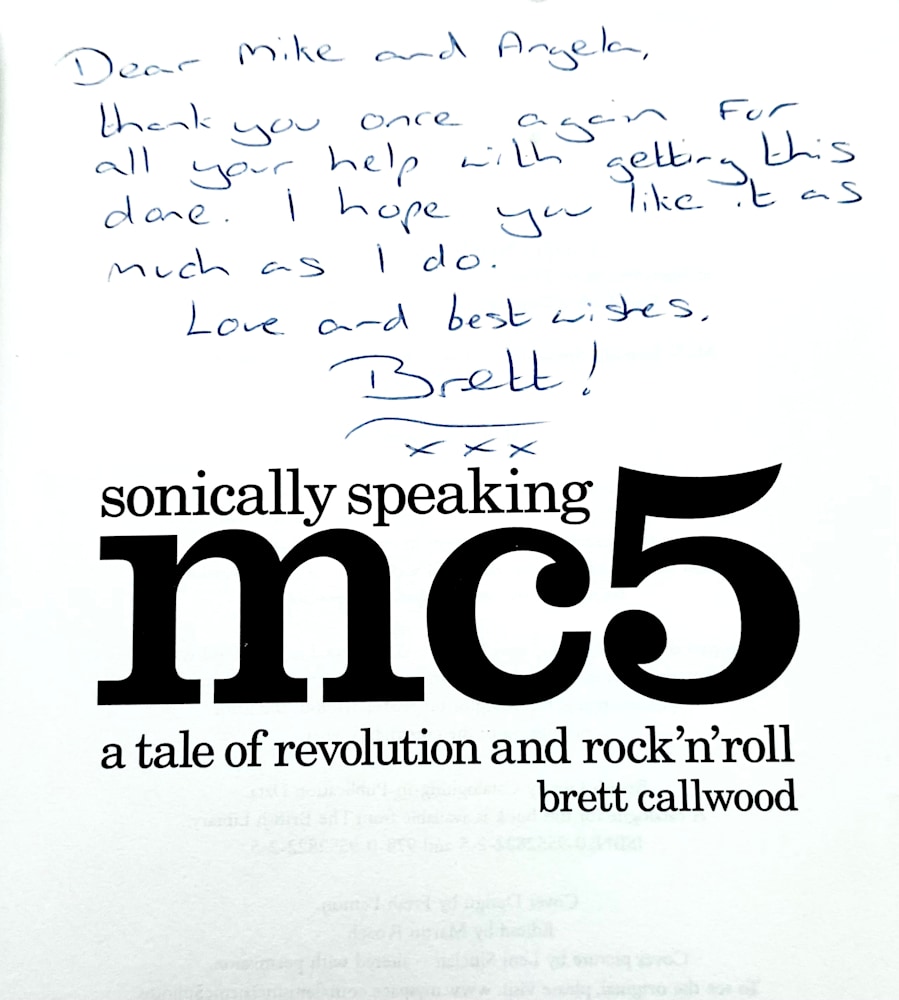 Dear Mike and Angela,
thank you once again For
all your help with getting this
done. I hope you like it as
much as I do.
Love and best wishes.
Brett!
x x x
sonically speaking
mc5
a tale of revolution and rock’n’roll
brett callwood